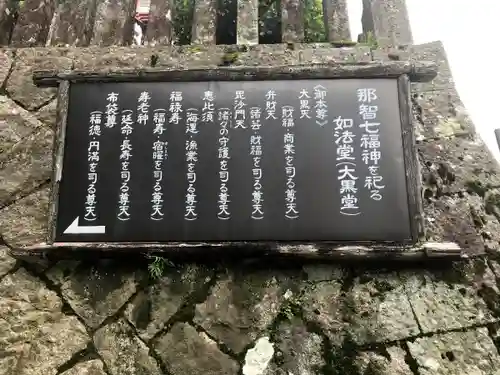 那智七福神を祀る
如法堂(大黒堂)
〈御本尊〉
大黒天
(財福 商業を司る尊天)
弁財天
(諸芸・財福を司る尊天)
毘沙門天
(諸々の守護を司る尊天)
恵比須
(海運・漁業を司る尊天)
福禄寿
(福寿・官曜を司る尊天)
寿老神
(延命・長寿を司る尊天)
布袋尊
(福徳・円満を司る尊天)